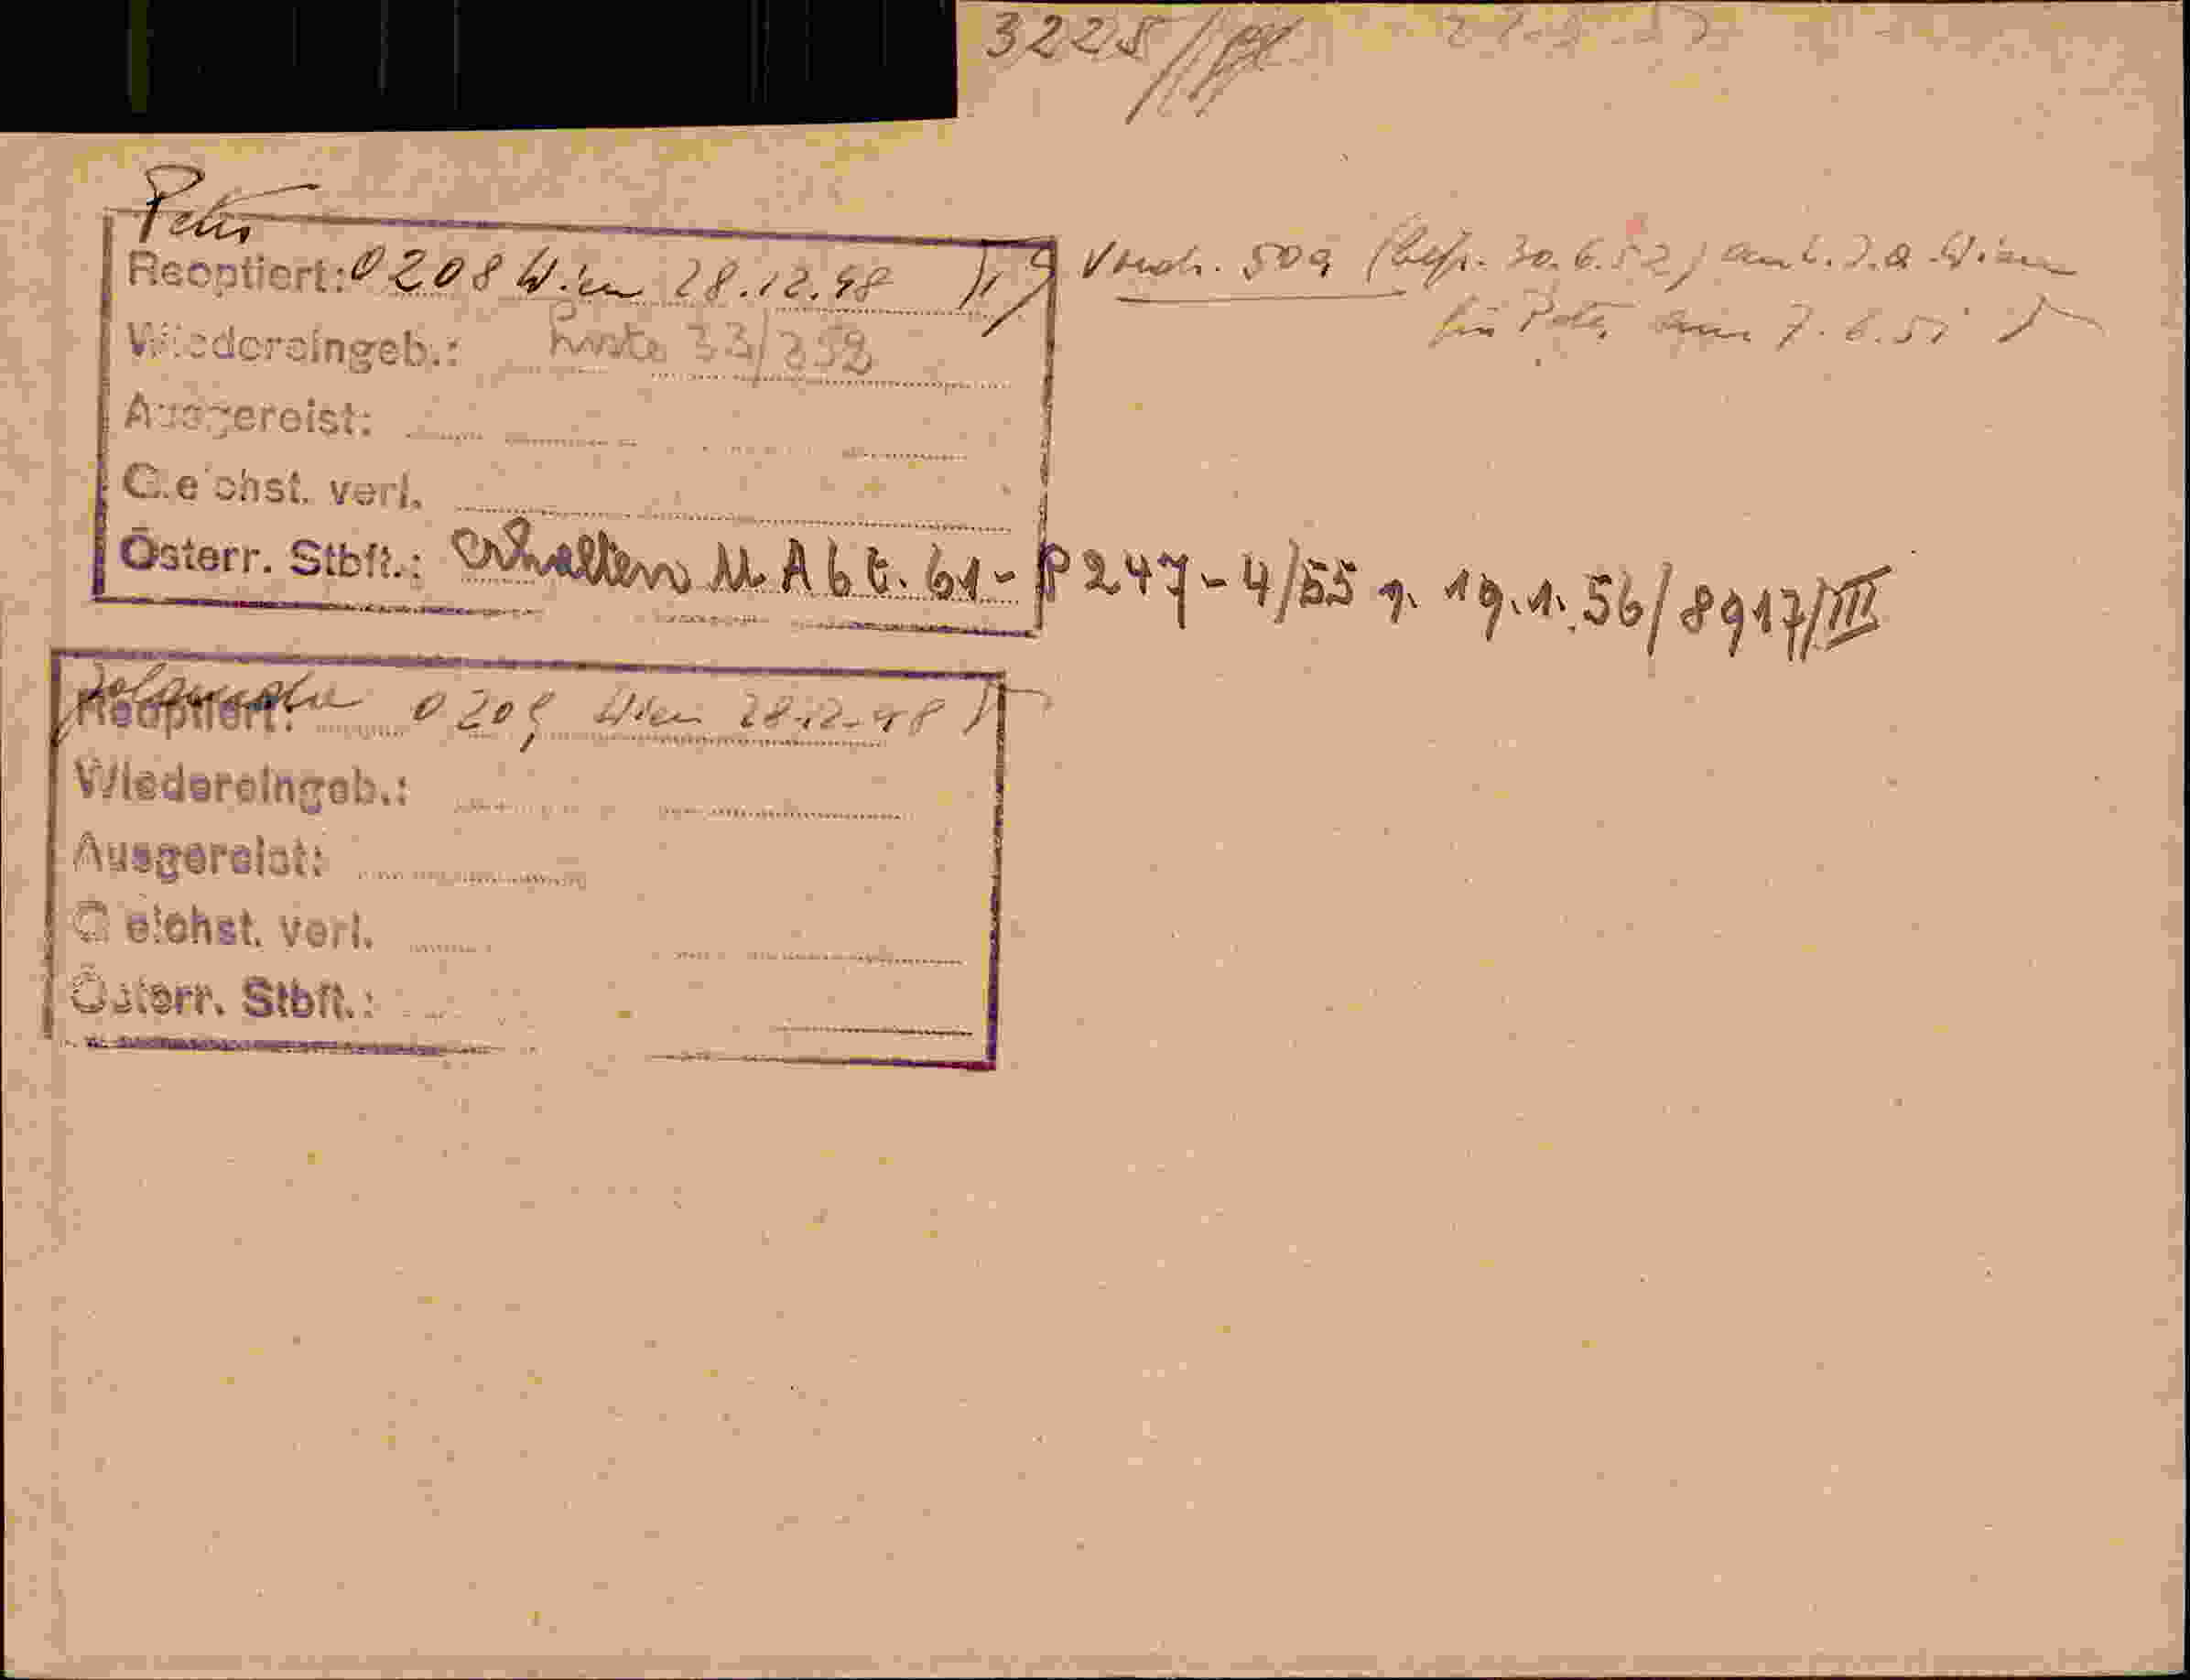 3225/
Peter
Reoptiert: 0208 Wien 28.12.48
Vordr. 50a (befr. 30.6.52) an L.J.A. Wien
für Peter am 7.6.51
Wiedereingeb.: Liste 33/252
Ausgereist:
Gleichst. verl.
Österr. Stbft.: erhalten M. Abt. 61 - P 247 - 4/55 v. 19.1.56/8917/III
Reoptiert: 0209 Wien 28.12.48
Wiedereingeb.:
Ausgereist:
Gleichst. verl.
Österr. Stbft.: